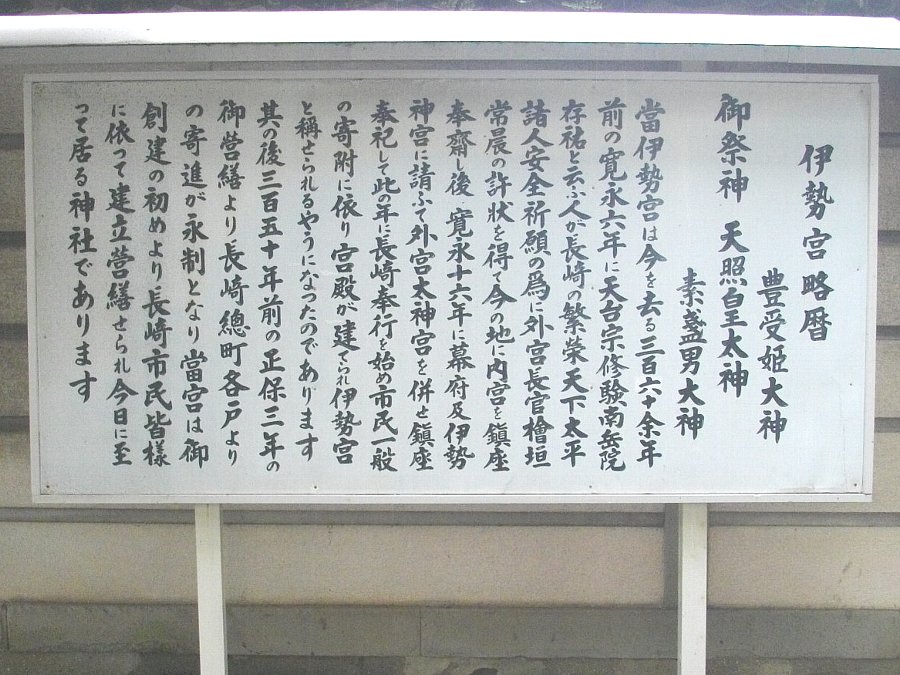 伊勢宮略暦
豊受姫大神
御祭神 天照白王太神
素盞男大神
當伊勢宮は今を去る三百六十余年
前の寛永六年に天台宗修験南岳院
存祐と云ふ人が長崎の繁榮天下太平
諸人安全祈願の爲に外宮長官檜垣
常晨の許状を得て今の地に内宮を鎮座
奉齋し後 寛永十六年に幕府及伊勢
神宮に請ふて外宮太神宮を併せ鎮座
奉祀して此の年に長崎奉行を始め市民一般
の寄附に依り 宮殿が建てられ伊勢宮
と稱せられるやうになつたのであります
其の後三百五十年前の正保三年の
御営繕より長崎總町各戸より
の寄進が永制となり當宮は御
創建の初めより長崎市民皆様
に依つて建立営繕せられ今日に至
つて居る神社であります